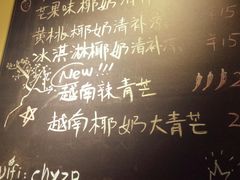 芒果味椰奶清补凉
黄桃椰奶清补凉 ¥15
冰淇淋椰奶清补凉 ¥15
New!!!
越南辣青芒
越南椰奶大青芒 2